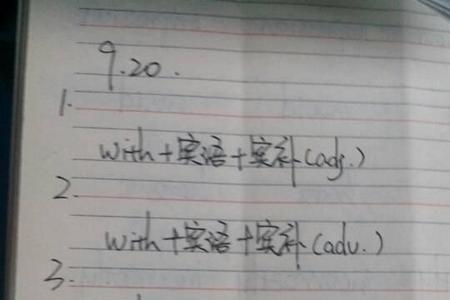 9.20.
1.
with+宾语+宾补(adj.)
2.
with+宾语+宾补(adv.)
3.